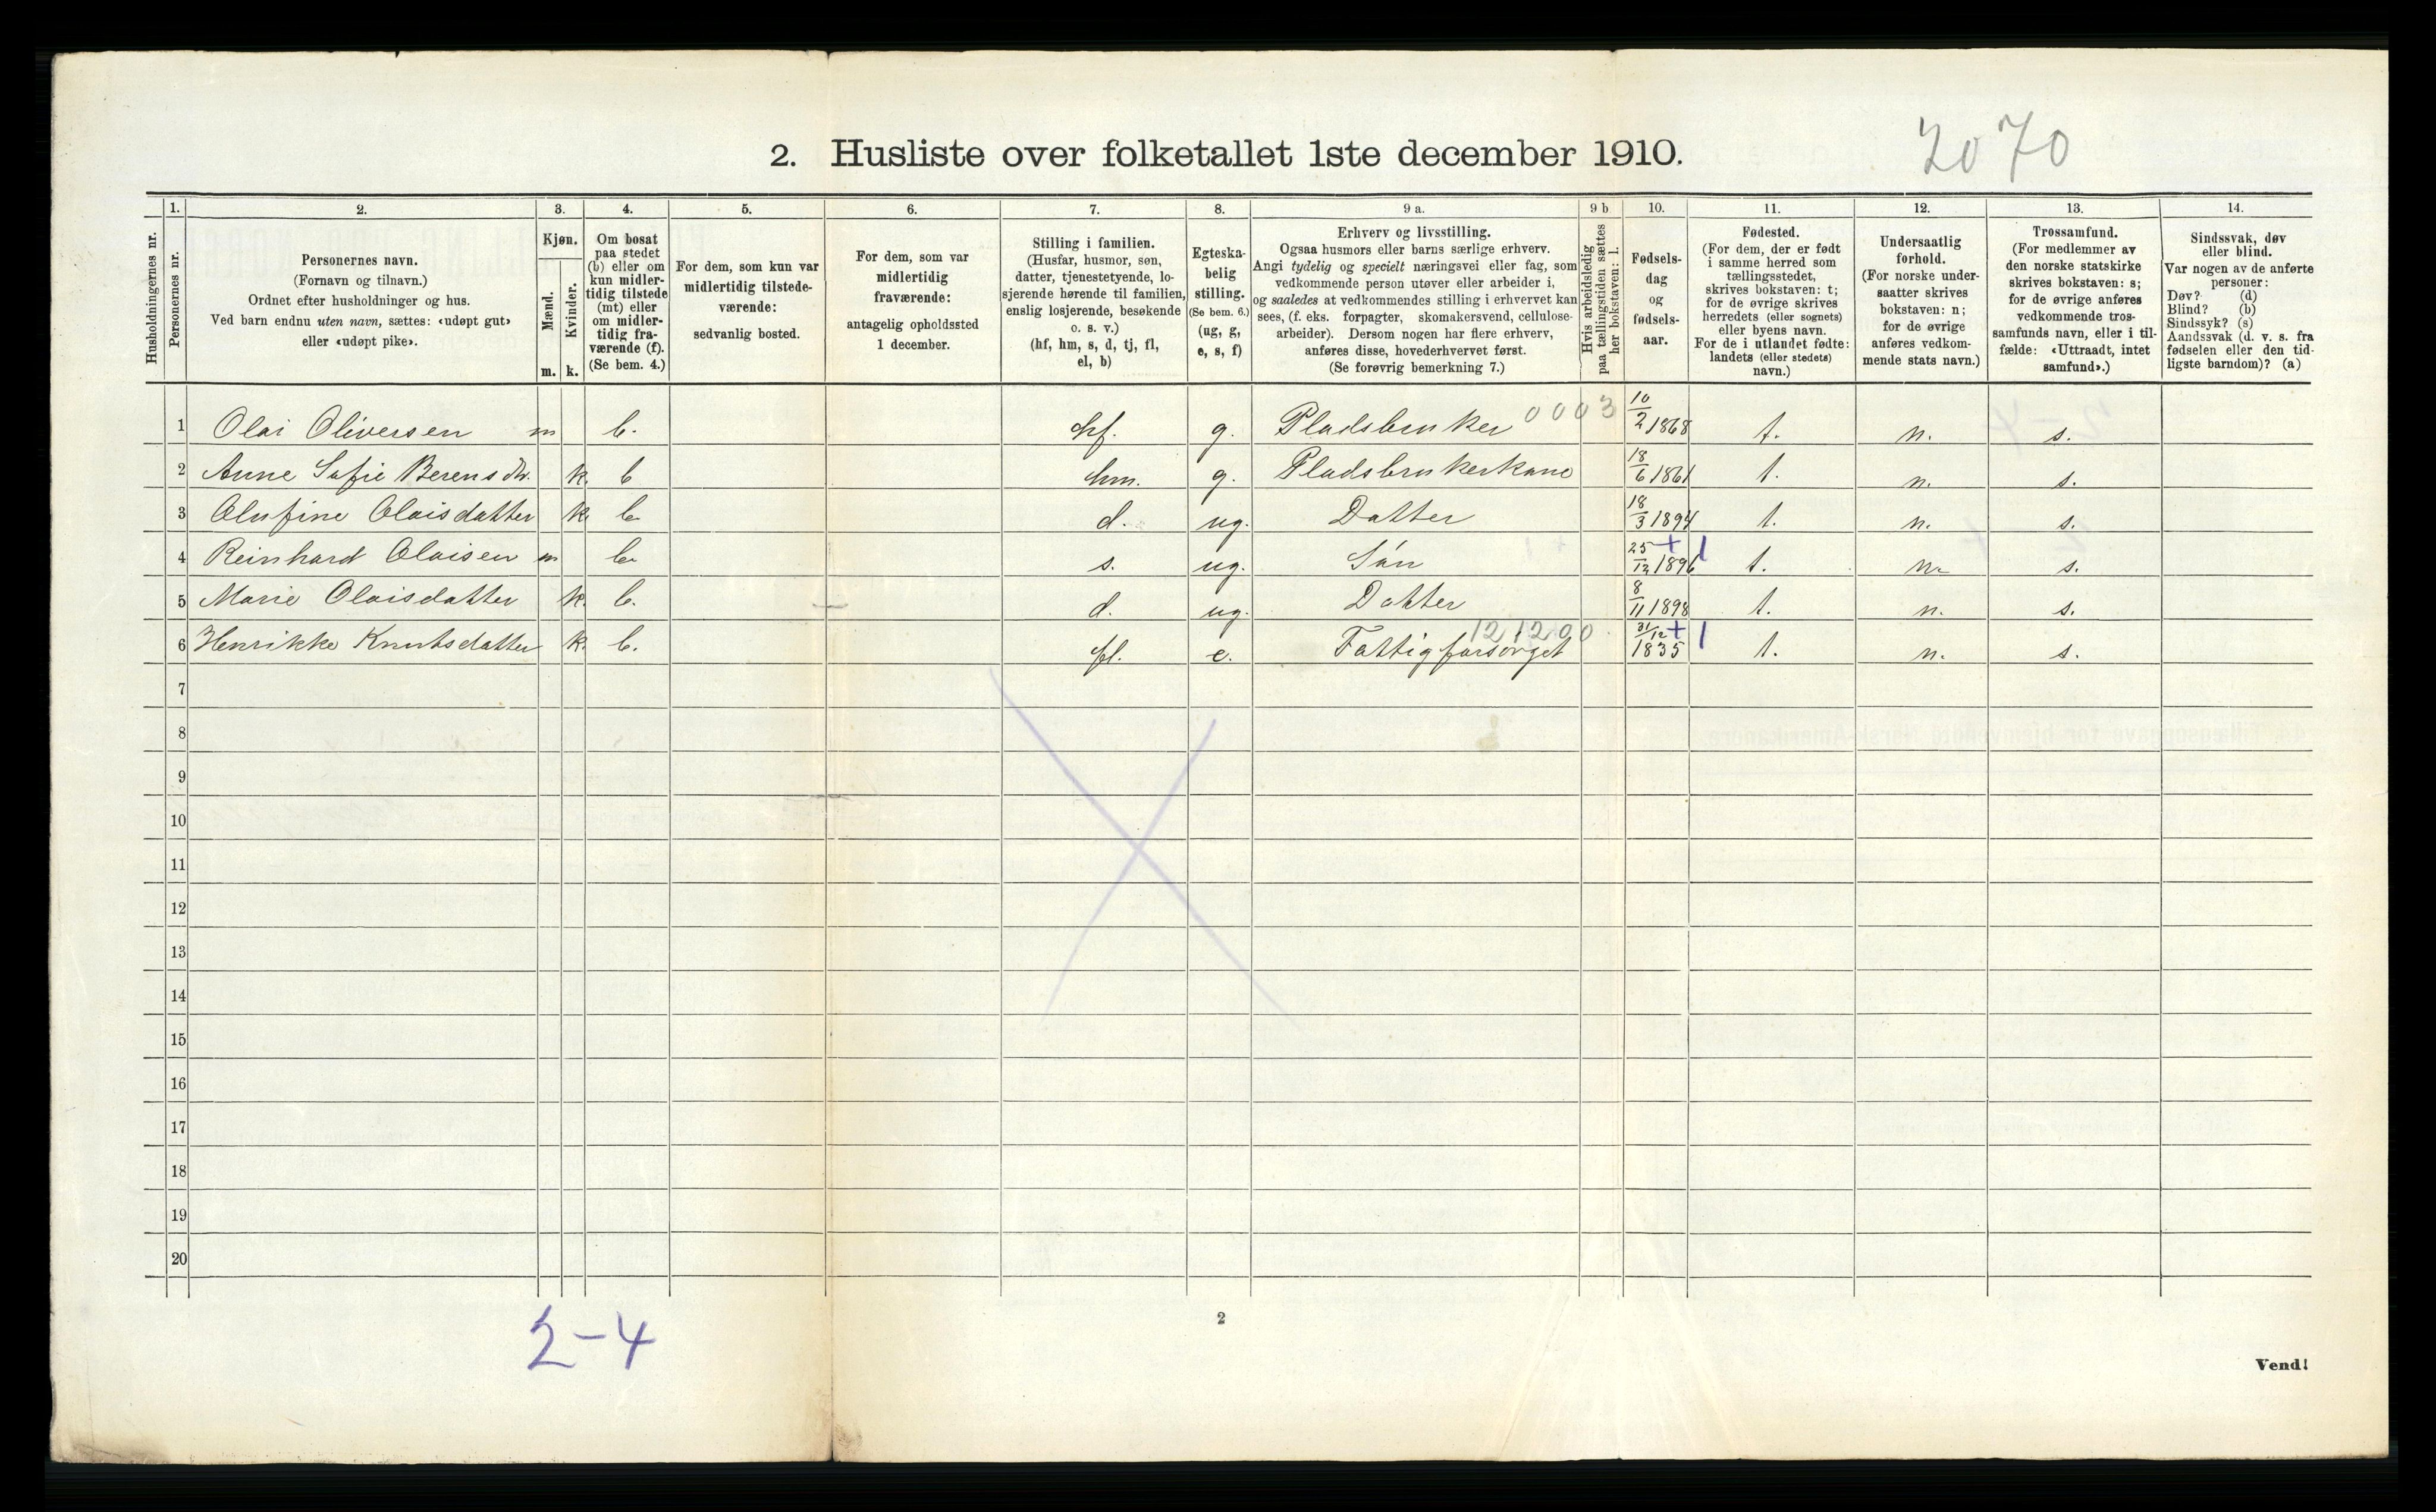 2. Husliste over folketallet 1ste december 1910.
2070
Husholdningernes nr.
1.
Personernes nr.
2.
Personernes navn.
(Fornavn og tilnavn.)
Ordnet efter husholdninger og hus.
Ved barn endnu uten navn, sættes: «udøpt gut»
eller «udøpt pike».
3.
Kjøn.
Mænd.
Kvinder.
m. k.
4.
Om bosat
paa stedet
(b) eller om
kun midler-
tidig tilstede
(mt) eller
om midler-
tidig fra-
værende (f).
(Se bem. 4.)
5.
For dem, som kun var
midlertidig tilstede-
værende:
sedvanlig bosted.
6.
For dem, som var
midlertidig
fraværende:
antagelig opholdssted
1 december.
7.
Stilling i familien.
(Husfar, husmor, søn,
datter, tjenestetyende, lo-
sjerende hørende til familien,
enslig losjerende, besøkende
o. s. v.)
(hf, hm, s, d, tj, fl,
el, b)
8.
Egteska-
belig
stilling.
(Se bem. 6.)
(ug, g,
e, s, f)
9 a.
Erhverv og livsstilling.
Ogsaa husmors eller barns særlige erhverv.
Angi tydelig og specielt næringsvei eller fag, som
vedkommende person utøver eller arbeider i,
og saaledes at vedkommendes stilling i erhvervet kan
sees, (f. eks. forpagter, skomakersvend, cellulose-
arbeider). Dersom nogen har flere erhverv,
anføres disse, hovederhvervet først.
(Se forøvrig bemerkning 7.)
9 b
Hvis arbeidsledig
paa tællingstiden sættes
her bokstaven: l.
10.
Fødsels-
dag
og
fødsels-
aar.
11.
Fødested.
(For dem, der er født
i samme herred som
tællingsstedet,
skrives bokstaven: t;
for de øvrige skrives
herredets (eller sognets)
eller byens navn.
For de i utlandet fødte:
landets (eller stedets)
navn.)
12.
Undersaatlig
forhold.
(For norske under-
saatter skrives
bokstaven: n;
for de øvrige
anføres vedkom-
mende stats navn.)
13.
Trossamfund.
(For medlemmer av
den norske statskirke
skrives bokstaven: s;
for de øvrige anføres
vedkommende tros-
samfunds navn, eller i til-
fælde: «Uttraadt, intet
samfund».)
14.
Sindssvak, døv
eller blind.
Var nogen av de anførte
personer:
Døv? (d)
Blind? (b)
Sindssyk? (s)
Aandssvak (d. v. s. fra
fødselen eller den tid-
ligste barndom)? (a)
1 Olai Oliversen m b. hf. g. Pladsbruker 0003 10/2 1868 t. n. s.
2 Anne Sofie Berensdtr. k. b hm. g. Pladsbrukerkone 18/6 1861 t. n. s.
3 Olufine Olaisdatter k. b. d. ug. Datter 18/3 1894 t. n. s.
4 Reinhard Olaisen m b. s. ug. Sön 25/12 1896 + 1 t. n. s.
5 Marie Olaisdatter k. b. d. ug. Datter 8/11 1898 t. n. s.
6 Henrikke Knutsdatter k. b. fl. e. Fattigforsörget 121200 31/12 1835 + 1 t. n. s.
7
8
9
10
11
12
13
14
15
16
17
18
19
20
2-4
2
Vend!